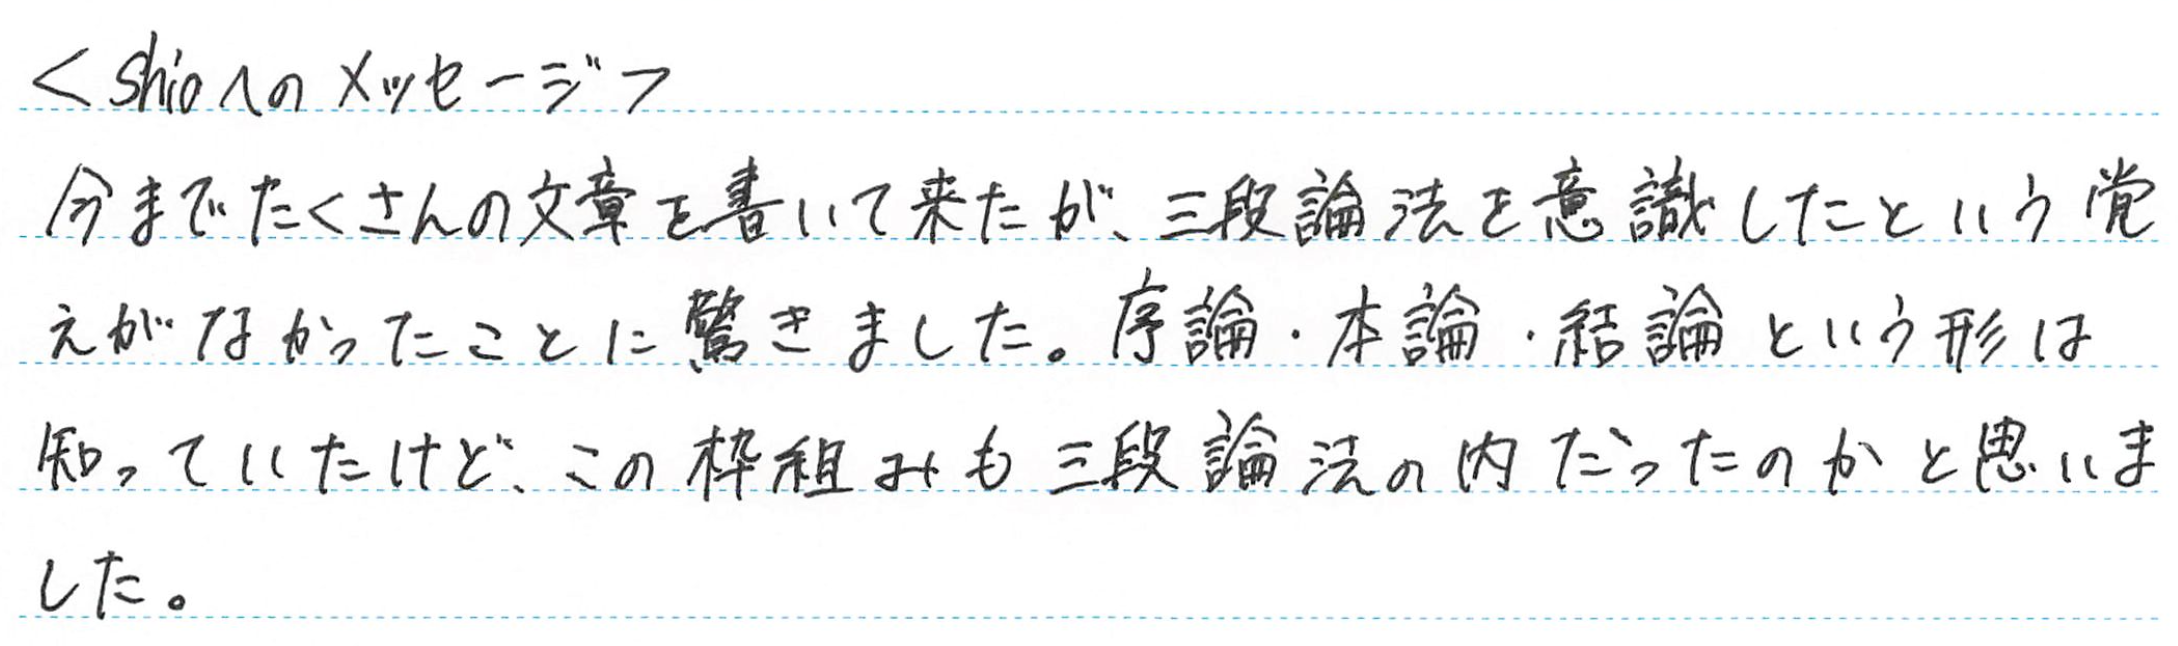 ＜shioへのメッセージ＞
今までたくさんの文章を書いて来たが、三段論法を意識したという覚
えがなかったことに驚きました。序論・本論・結論という形は
知っていたけど、この枠組みも三段論法の内だったのかと思いま
した。